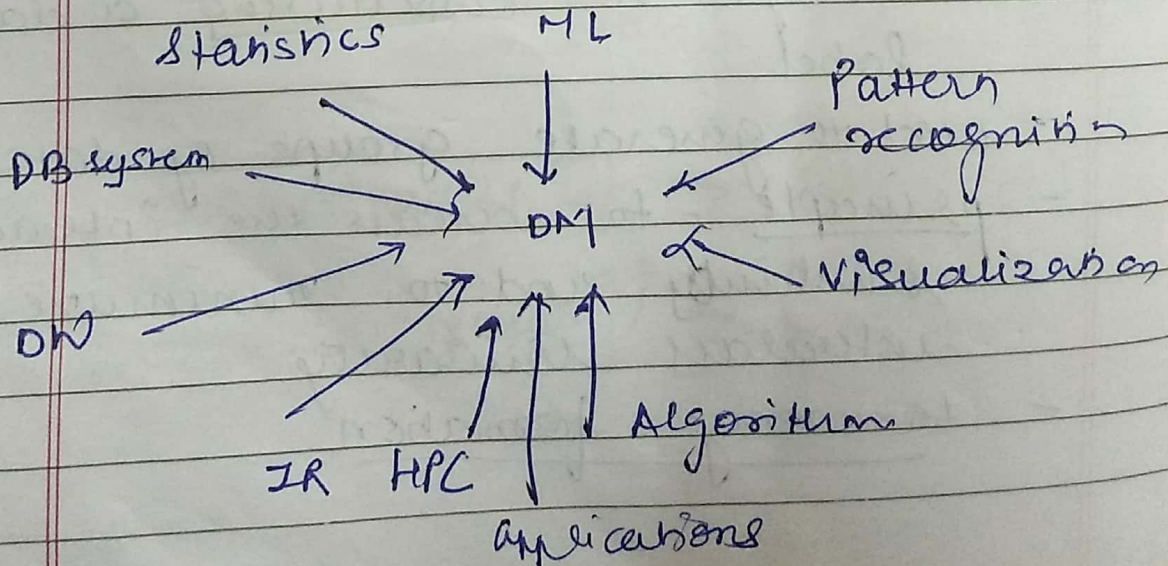 Statistics
ML
Pattern
recognition
DB system
DM
Visualization
DW
Algorithm
IR HPC
applications